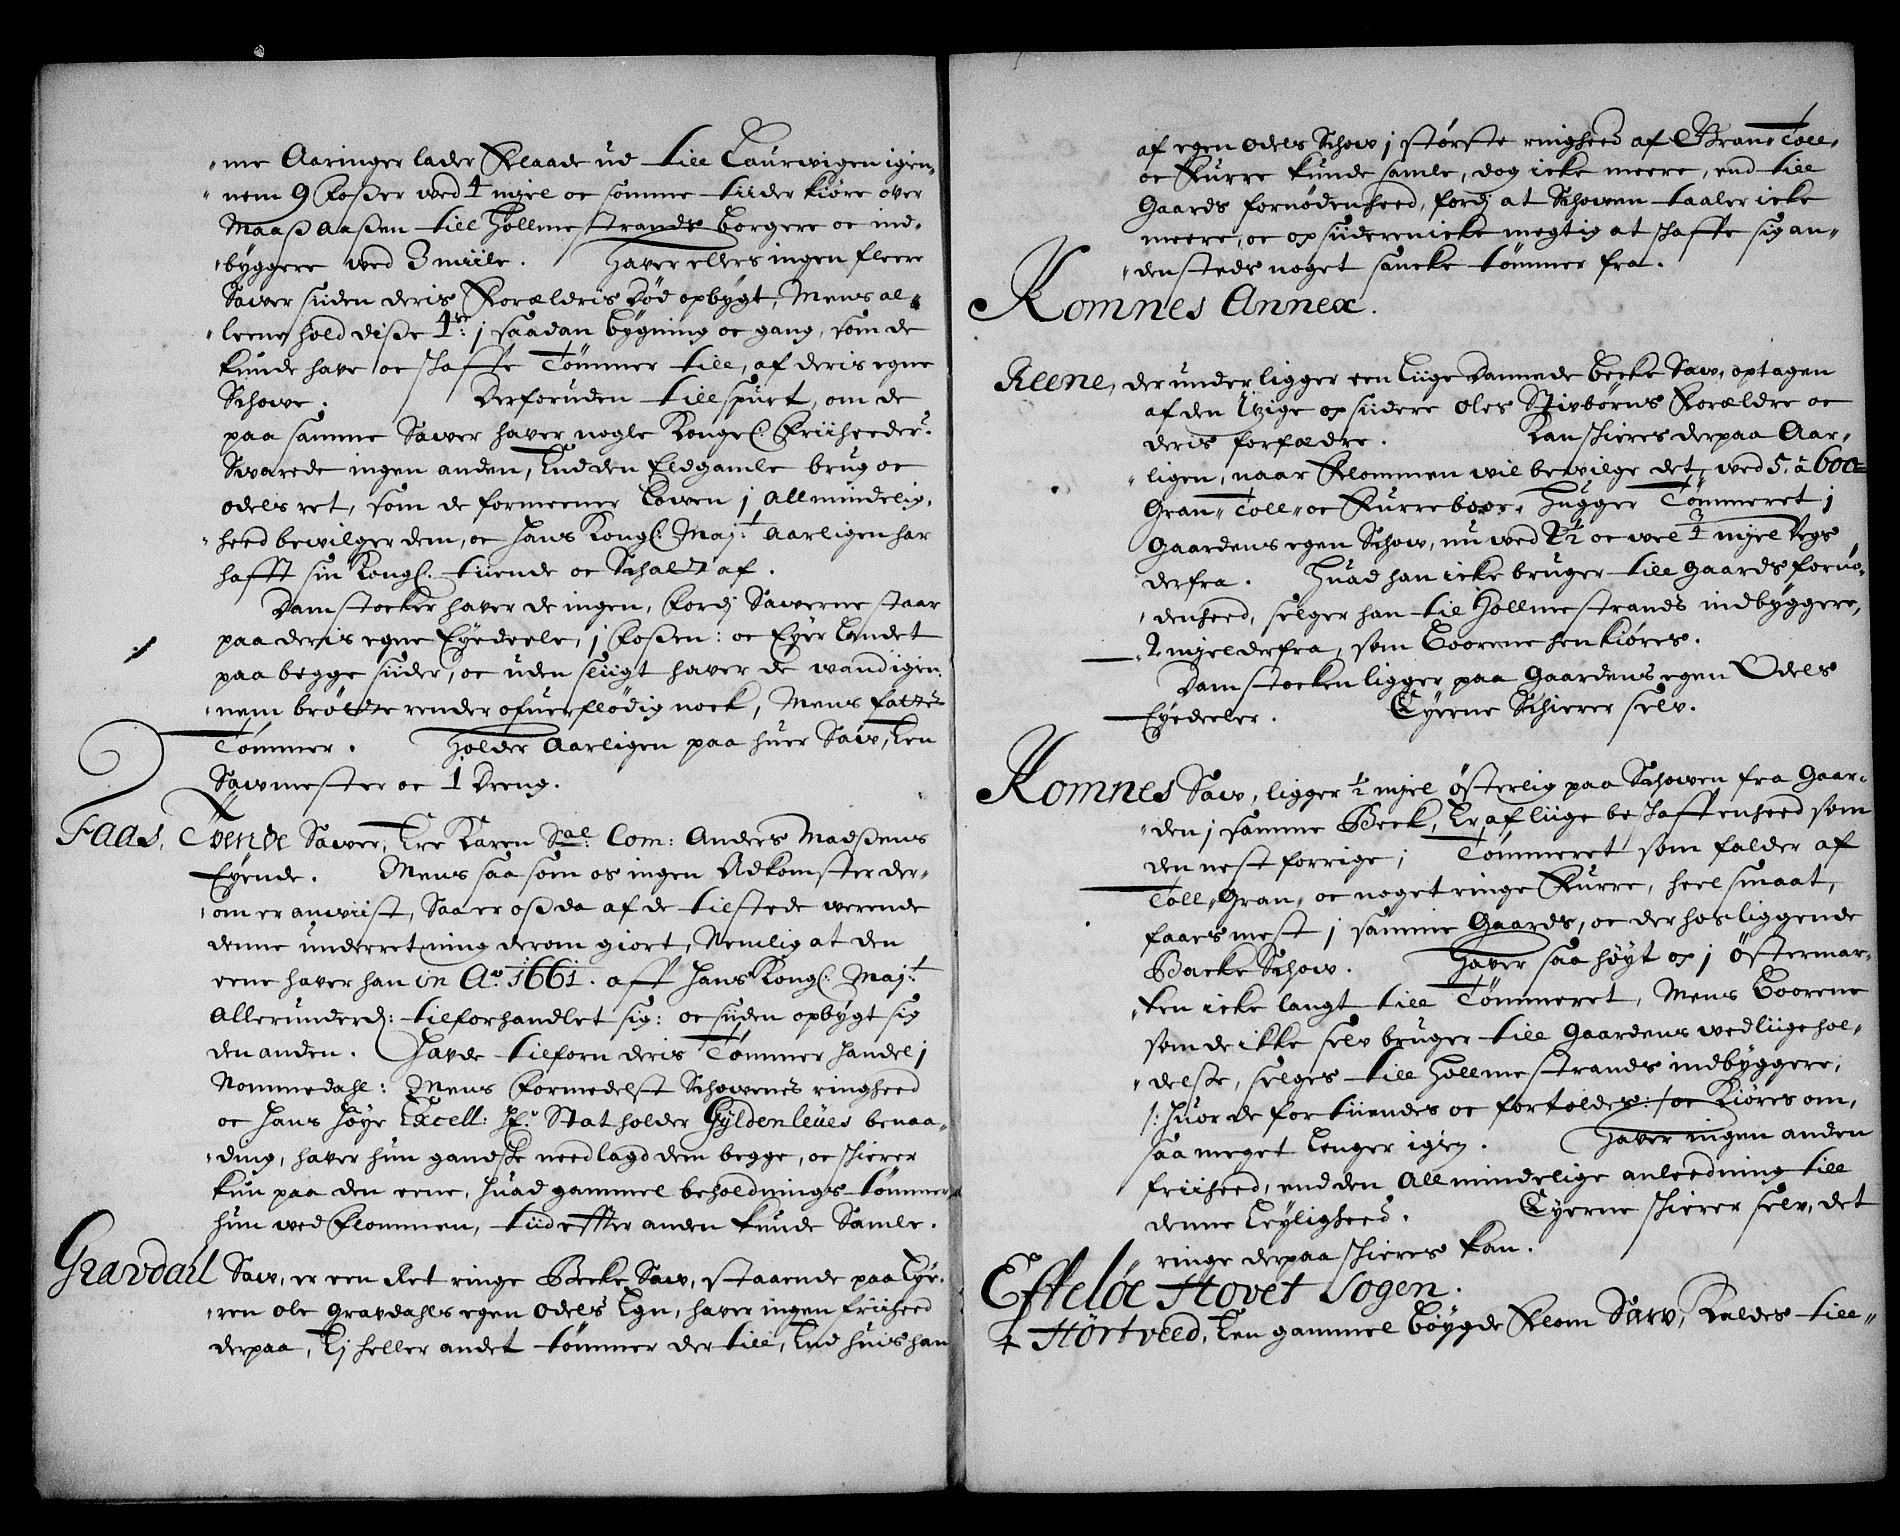 "me Aaringer lader Flaade ud till Laurvigen igien,,
"nem 9 Foßer ved 4 mjel oc somme tiider kiøre over
Maaß aaßen till Hollmestrands borgere oc ind,
"byggere ved 3 miile. Haver ellers ingen fleere
Sawer siiden deris Forældris Død opbygt, Mens al,,
"leene hold diße 4re: j saadan bygning oc gang, som de
kunde have oc schaffe Tømmer till, af deris egne
Schowe. Derforuden tillspurt, om de
paa samme Sawer haver nogle Kongel: Friiheeder.
Swarede ingen anden, End den Eldgamle brug oc
odels ret, som de formeener Lowen j allmindelig,
"heed bewilger dem, oc Hans Kongl: Maj:t aarligen har
hafft sin Kongl. tiiende oc Schatt af.
Damstocker haver de ingen, fordj Sawerne staar
paa deris egne Eyedeele, j Foßen: oc Eyer Landet
paa begge siider, oc uden sligt haver de wand igien,
"nem  render ofuerflødig nock, Mens fattes
Tømmer. Holder Aarligen paa huer Saw, Een
Sawmester oc 1 Dreng.
Faas, Tvende Sawer, Ere Karen Sal: Com: Anders Madßens
Eyende. Mens saasom os ingen Adkomster der,,
"om er anwiist, Saa er oß da af de tilstede werende
denne underretning derom giort, Nemlig at den
eene haver han in Ao. 1661. aff Hans Kongl: Maj:t
Allerunderd: tilforhandlet sig: oc siiden opbygt sig
den anden. Havde tilforn deris Tømmer handel j
Nommedahl: Mens formedelst Schowenes ringheed
oc Hans Høye Excell: Hr. Statholder Gyldenleues benaa,,
"ding, haver hun gandske needlagd dem begge, oc schierer
kun paa den eene, huad gammel beholdnings tømmer
hun wed Flommen, tiid effter anden kunde Samle.
Gravdall Saw, er een Ret ringe Becke Saw, staaende paa Eye,
"ren ole Gravdahls egen odels Egn, haver ingen friiheed
derpaa, Ej heller andet tømmer der till, End huis han
af egen odels Schow j største ringheed af Gran,, Toll,,
oc Furre kunde samle, dog icke meere, end till
Gaards fornødenheed, fordj at Schowen taaler icke
meere, oc opsiideren icke megtig at schaffe sig an,,
"densteds noget sancke tømmer fra.
Komnes Annex.
Reene, der under ligger een liige Dannede becke Saw, optagen
af den Itzige opsiidere Oles  Forældre oc
deris forfædre. Kan schieres derpaa Aar,,
"ligen, naar Flommen wil bewilge det, wed 5. à 600
Gran,, Toll,, oc Furreboer. Hugger Tømmeret j
Gaardens egen Schow, nu wed 1/2 oc wel 3/4 mjel Vegs
derfra. Huad han icke bruger till Gaards fornø,,
"denheed, selger han til Hollmestrands indbyggere,
2 mjel derfra, som boorene hen kiøres.
Damstocken ligger paa Gaardens egen Odels
Eyedeeler. Eyerne Schierer selv.
Komnes Saw, ligger 1/2 mjel østerlig paa Schowen fra Gaar,,
"den j samme Beck, Er af liige beschaffenheed som
den nest forrige; Tømmeret som falder af
Toll,, Gran,, oc noget ringe Furre, heel smaat,
faaes mest j samme Gaards, oc derhos liggende
Backe Schow. Haver saa høyt op j østermar,,
"ken icke langt till Tømmeret, Mens boorene
som de ikke selv bruger till Gaardens wedliigehol,,
"delße, selges till Hollmestrands indbyggere,
/: Huor de fortiiendes oc fortoldes :/ oc kiøres om,
saa meget lenger igien. Haver ingen anden
friiheed, end den Allmindelige anleedning till
denne leyligheed. Eyerne schierer selv, det
ringe derpaa schieres kan.
Effteløe Hovet Sogen.
Hørtveed, Een gammel bøygde Flom Saw, Kaldes till,,